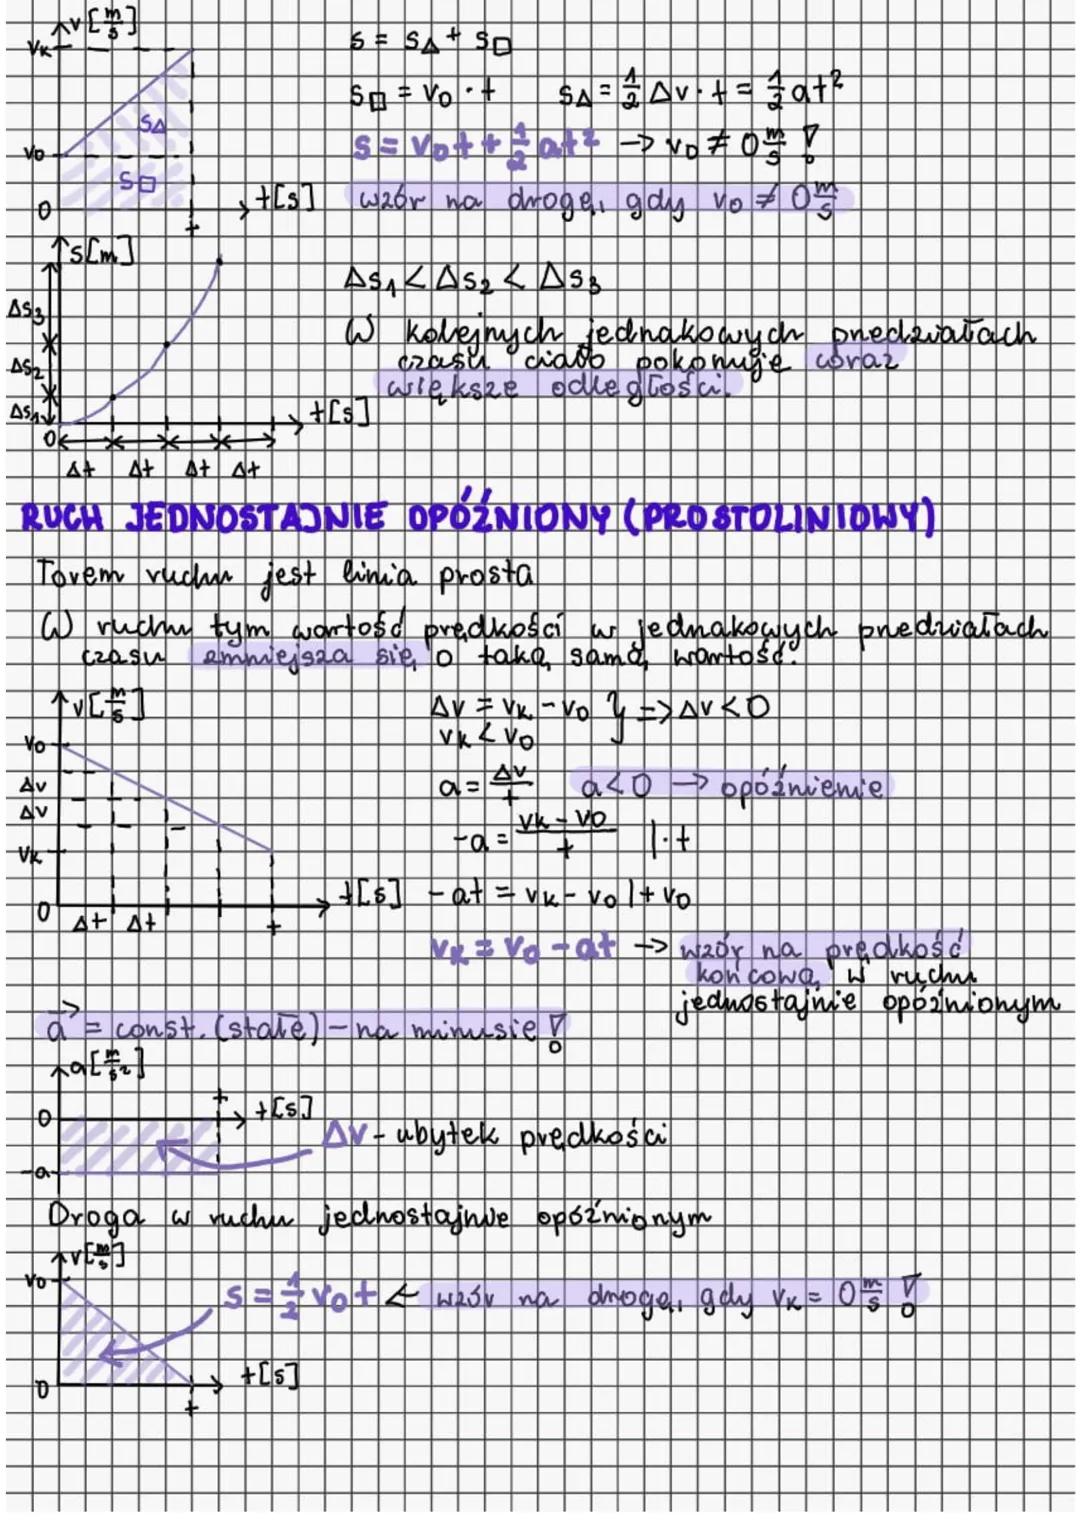 v [m/s]
vk
s = s△ + s□
s□ = v₀ · t    s△ = 1/2 Δv · t = 1/2 at²
s△
s = v₀t + 1/2 at² → v₀ ≠ 0 m/s !
v₀
s□
0
t[s]
t
wzór na drogę, gdy v₀ ≠ 0 m/s
s[m]
Δs₁ < Δs₂ < Δs₃
Δs₃
Δs₂
Δs₁
W kolejnych jednakowych przedziałach
czasu ciało pokonuje coraz
większe odległości.
t[s]
0
Δt Δt Δt Δt
RUCH JEDNOSTAJNIE OPÓŹNIONY (PROSTOLINIOWY)
Torem ruchu jest linia prosta
W ruchu tym wartość prędkości w jednakowych przedziałach
czasu zmniejsza się o taką samą wartość.
v[m/s]
Δv = vk - v₀ } => Δv < 0
vk < v₀
v₀
Δv
Δv
vk
a = Δv/t    a < 0 → opóźnienie
-a = (vk - v₀)/t  | · t
0
Δt Δt
t
t[s]
-at = vk - v₀ | + v₀
vk = v₀ - at → wzór na prędkość
końcową w ruchu
jednostajnie opóźnionym
a⃗ = const. (stałe) - na minusie !
a[m/s²]
0
t
t[s]
-a
Δv - ubytek prędkości
Droga w ruchu jednostajnie opóźnionym
v[m/s]
v₀
s = 1/2 v₀t ← wzór na drogę, gdy vk = 0 m/s !
0
t[s]
t